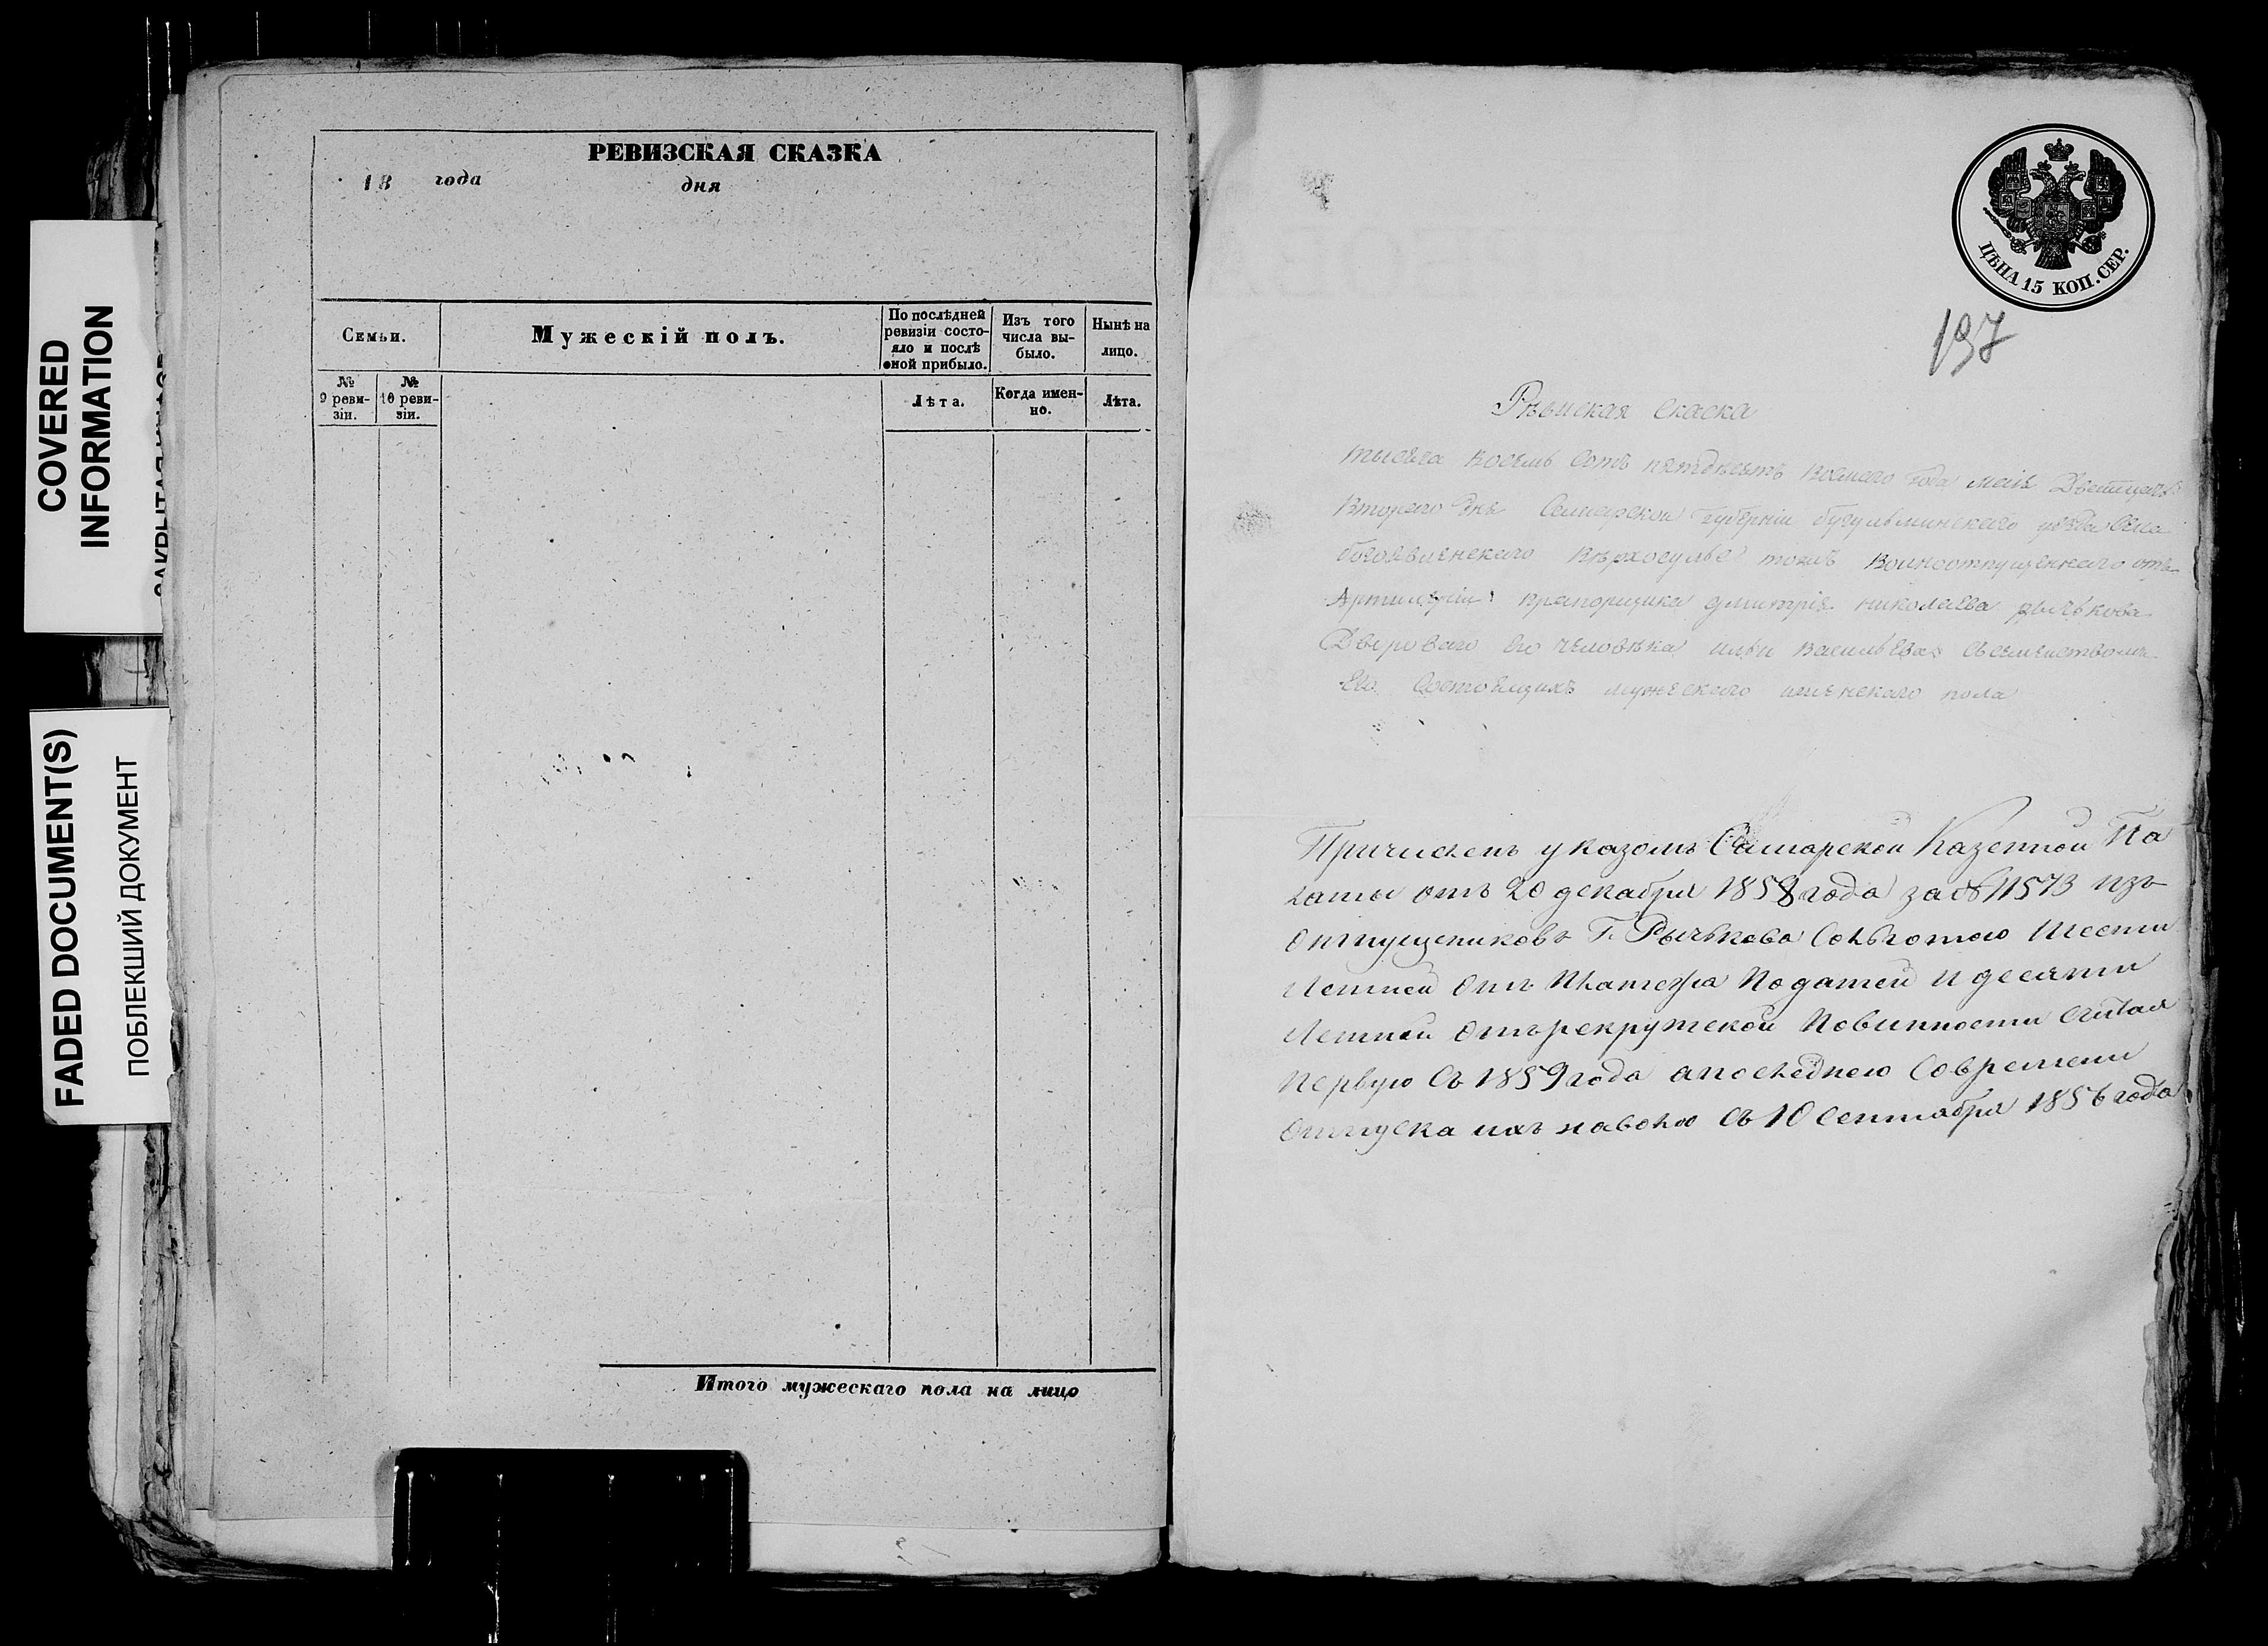 COVERED
INFORMATION
FADED DOCUMENT(S)
ПОБЛЕКШИЙ ДОКУМЕНТ
РЕВИЗСКАЯ СКАЗКА
18 года дня
Семьи.
Мужескій полъ.
По послѣдней
ревизіи состо-
яло и послѣ
оной прибыло.
Изъ того
числа вы-
было.
Нынѣ на
лицо.
№
9 реви-
зіи.
№
10 реви-
зіи.
Лѣта.
Когда имен-
но.
Лѣта.
Итого мужескаго пола на лицо
ЦѢНА 15 КОП. СЕР.
197
Ревиская скаска
тысеча восемь сотъ пятдесетъ восмаго года маія Дватцеть
второго дня Самарской губерніи бугульминскаго уезда села
богоявленскаго Верхосулье тожъ Волноотпущеннаго отъ
Артилеріи Прапорщика дмитрія николаева рычкова
Двороваго его человѣка ильи васильева съсемействомъ
Его Состоящихъ мужескаго иженскаго пола
Причисленъ указомъ Самарской Казенной Па
латы отъ 20 декабря 1858 года за № 11573 изъ
Отпущениковъ Г. Рычкова Сольготою Шести
Летней Отъ Платежа Податей И десяти
Летней Отърекрутской Повинности Считая
Первую Съ 1859 года апоследнею Современи
Отпуска ихъ наволю Съ 10 Сентября 1856 года